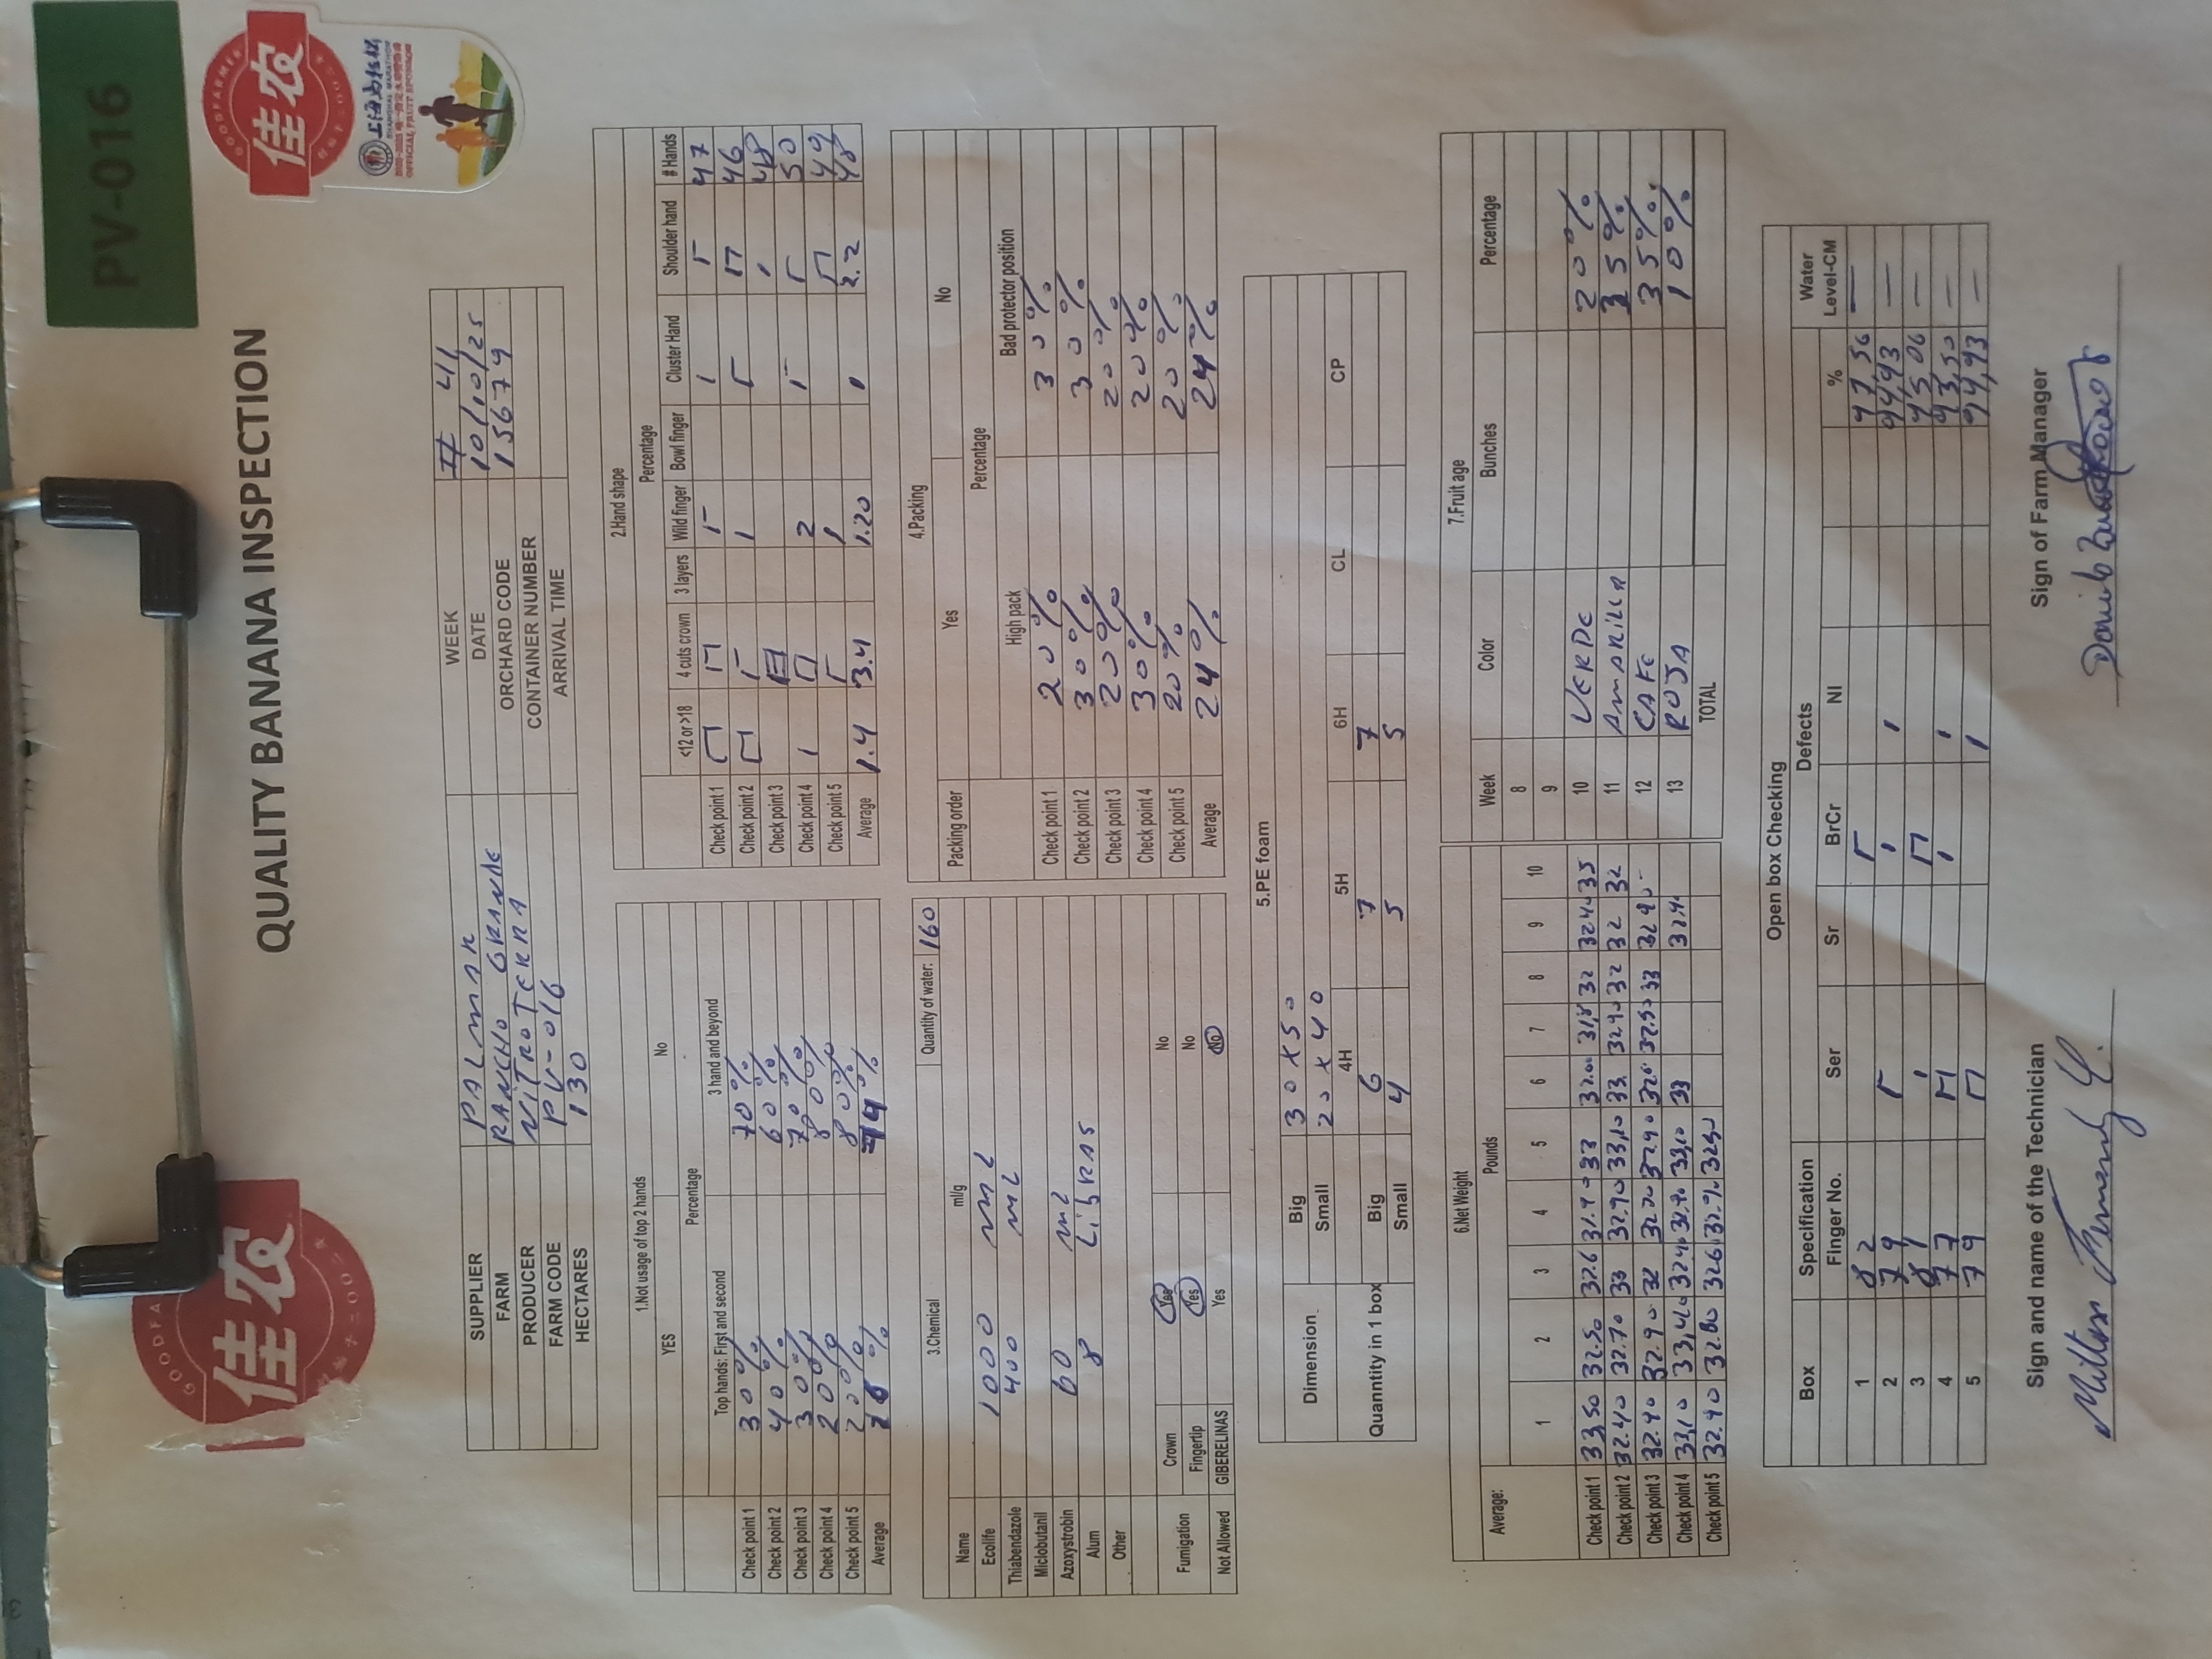 PV-016
GOODFA
佳农
GOODFARMER
佳农
上海马拉松
SHANGHAI MARATHON
OFFICIAL FRUIT SPONSOR
QUALITY BANANA INSPECTION
SUPPLIER PALMAR WEEK # 41
FARM RANCHO GRANDE DATE 10/10/25
PRODUCER NITROTERRA ORCHARD CODE 15679
FARM CODE PV-016 CONTAINER NUMBER
HECTARES 130 ARRIVAL TIME
1.Not usage of top 2 hands
YES No
Percentage
Top hands: First and second 3 hand and beyond
Check point 1 30% 70%
Check point 2 40% 60%
Check point 3 30% 70%
Check point 4 20% 80%
Check point 5 20% 80%
Average %  %
2.Hand shape
Percentage
<12 or >18 4 cuts crown 3 layers Wild finger Bowl finger Cluster Hand Shoulder hand # Hands
Check point 1 47
Check point 2 1 46
Check point 3 1 48
Check point 4 1 2 50
Check point 5 1 49
Average 1.4 3.4 1.20 1 2.2 48
3.Chemical Quantity of water: 160
Name ml/g
Ecolife 1000 ml
Thiabendazole 400 ml
Miclobutanil
Azoxystrobin 60 ml
Alum 8 LibRAS
Other
Fumigation Crown Yes No
Fingertip Yes No
Not Allowed GIBERELINAS Yes No
4.Packing
Packing order Yes No
Percentage
High pack Bad protector position
Check point 1 20% 30%
Check point 2 30% 30%
Check point 3 20% 20%
Check point 4 30% 20%
Check point 5 20% 20%
Average 24% 24%
5.PE foam
Dimension Big 30x50
Small 20x40
4H 5H 6H CL CP
Quanntity in 1 box Big 6 7 7
Small 4 5 5
6.Net Weight
Average: Pounds
1 2 3 4 5 6 7 8 9 10
Check point 1 33,50 32.50 32.6 31.9 33 32.00 31,8 32 32.4 35
Check point 2 32.40 32.70 33 32.90 33,10 33 32.90 32 32 32
Check point 3 32.90 32.90 32 32.70 32.90 32.50 33 32.90
Check point 4 33,10 33,40 32.90 33,10 33 32.9
Check point 5 32.90 32.80 32.6 32.50
7.Fruit age
Week Color Bunches Percentage
8
9
10 VERDE 20%
11 AMARILLA 35%
12 CAFE 35%
13 ROJA 10%
TOTAL
Open box Checking
Box Specification Defects Water
Finger No. Ser Sr BrCr NI % Level-CM
1 82 97,56 —
2 79 1 1 94,93 —
3 81 1 95,06 —
4 77 1 1 93,50 —
5 79 1 94,93 —
Sign and name of the Technician Sign of Farm Manager
Danilo